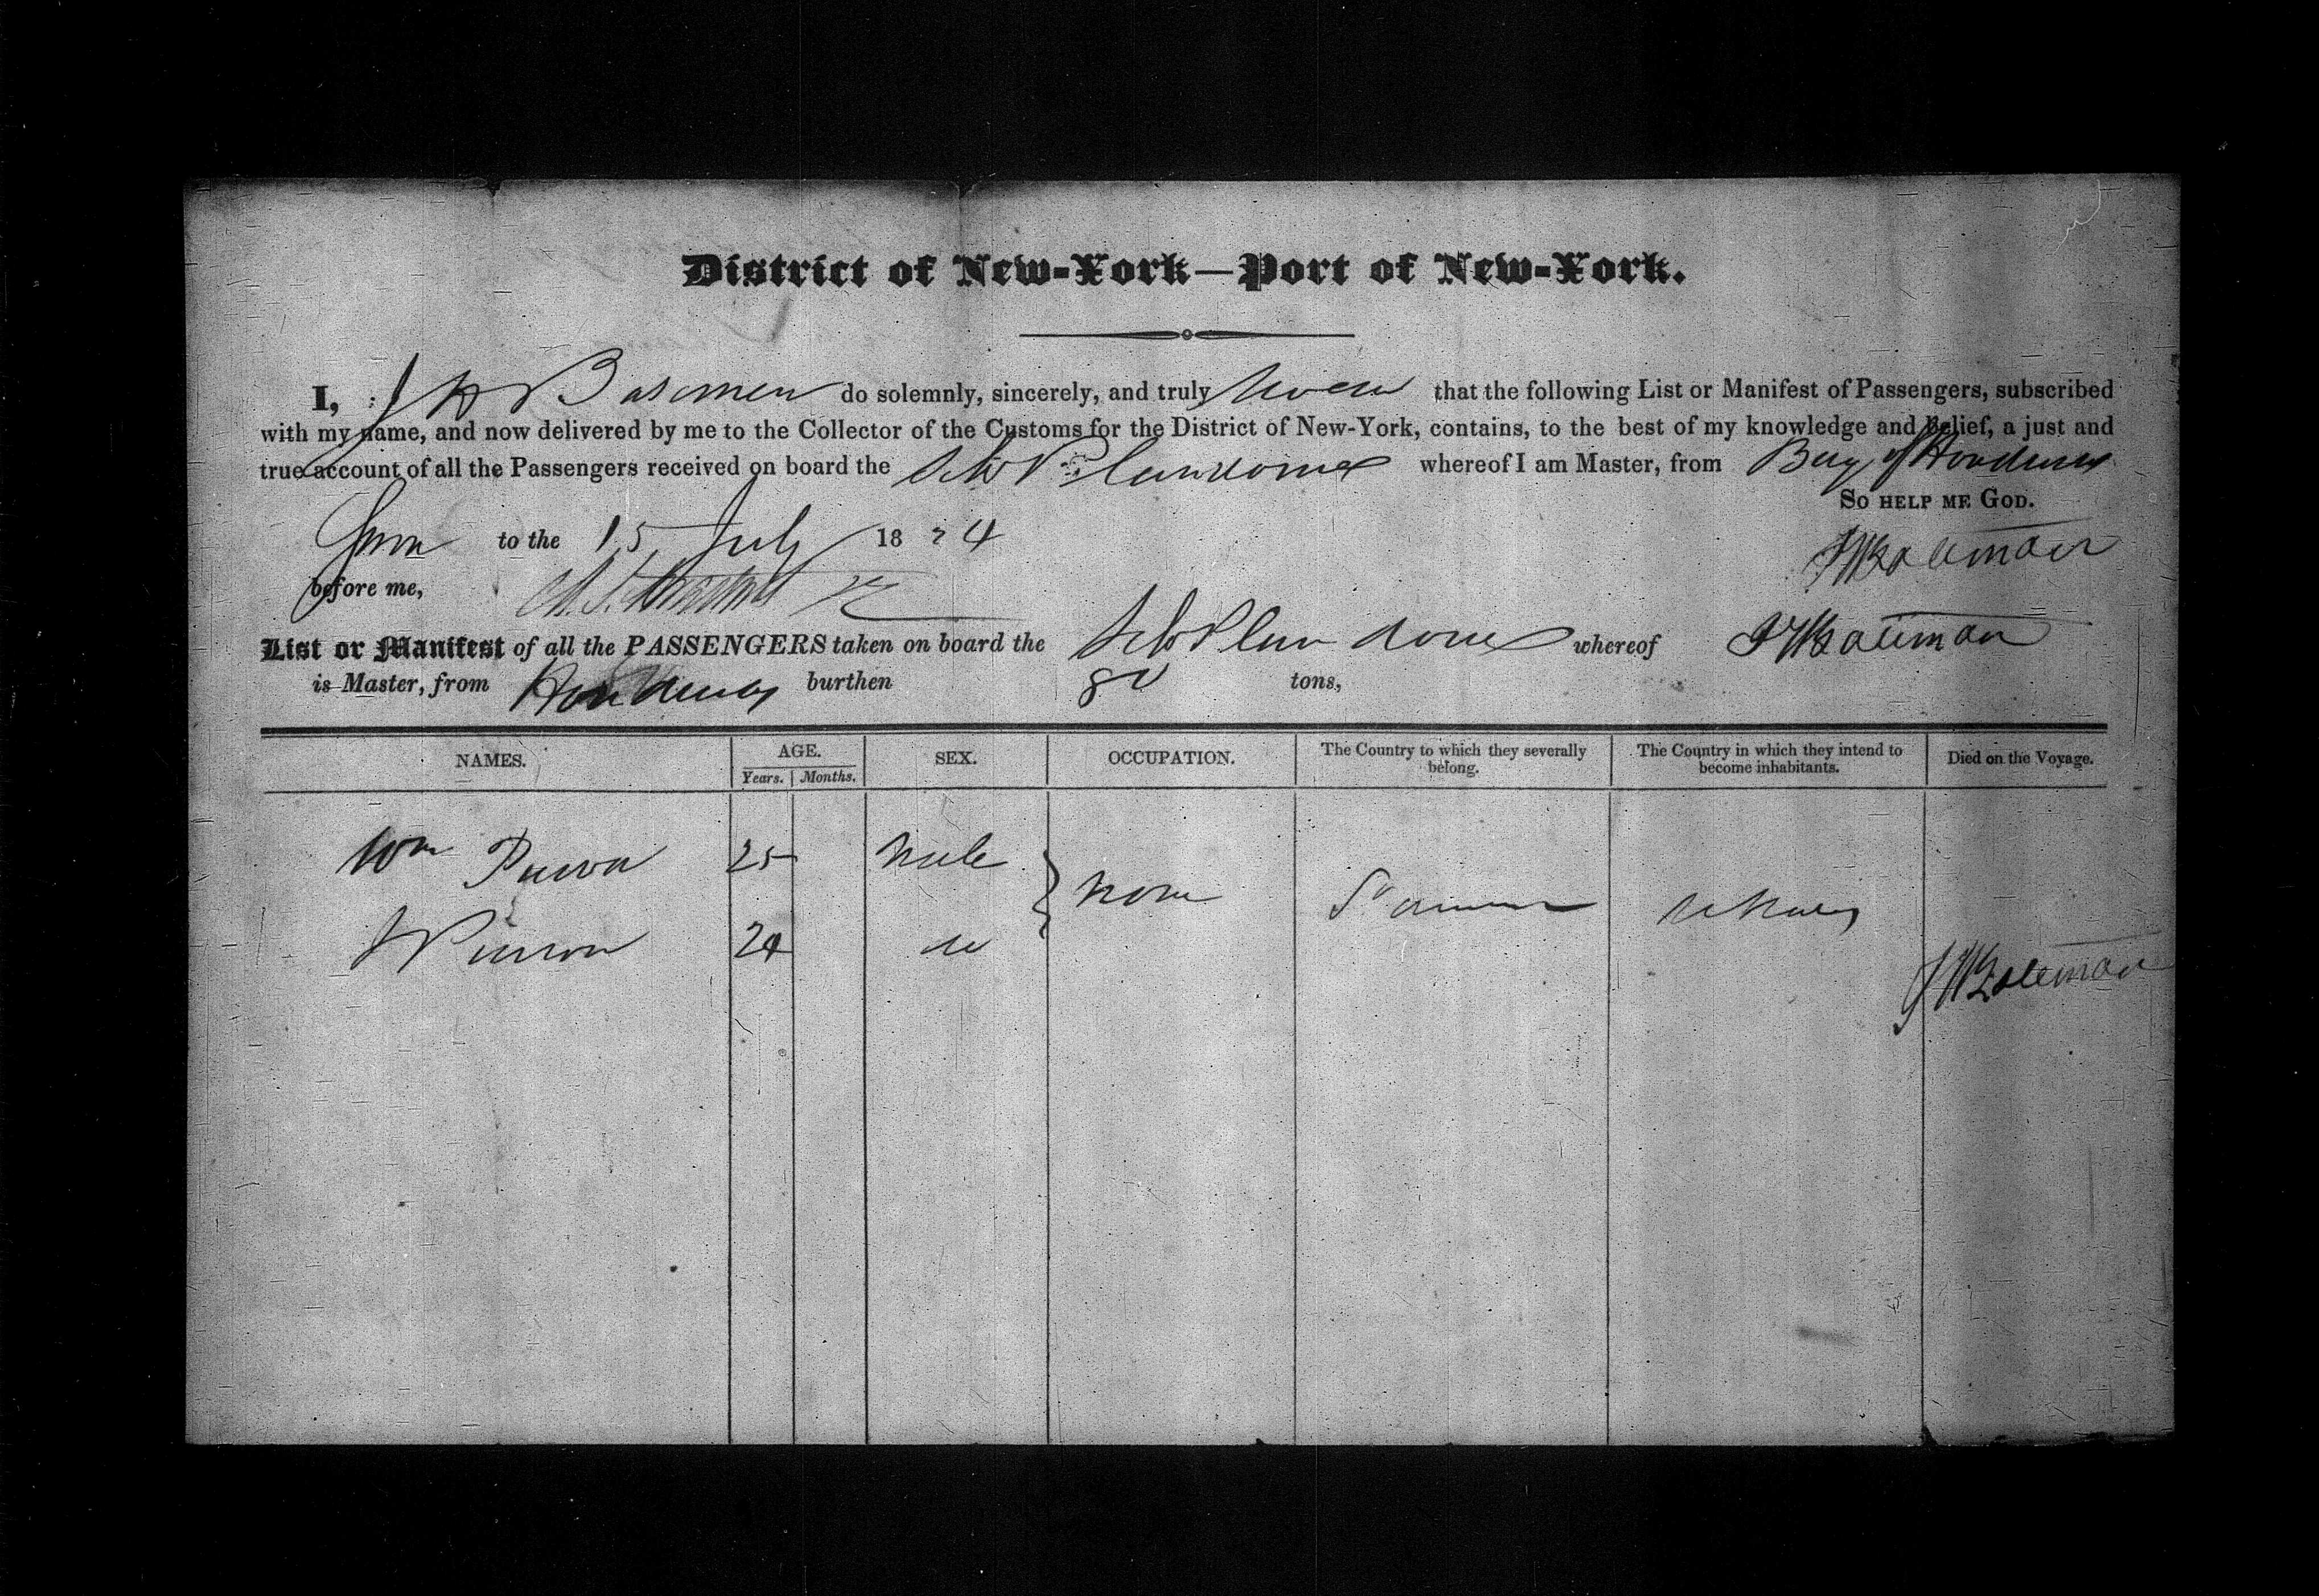 District of New-York—Port of New-York.
I, J W Bateman do solemnly, sincerely, and truly swear that the following List or Manifest of Passengers, subscribed
with my name, and now delivered by me to the Collector of the Customs for the District of New-York, contains, to the best of my knowledge and belief, a just and
true account of all the Passengers received on board the whereof I am Master, from Bay of Honduras
So help me God.
Sworn to the 15 July 18 4
J W Bateman
before me,
List or Manifest of all the PASSENGERS taken on board the whereof J W Bateman
is Master, from Honduras burthen 80 tons,
NAMES. AGE. SEX. OCCUPATION. The Country to which they severally belong. The Country in which they intend to become inhabitants. Died on the Voyage.
Years. Months.
Wm 25 Male
none
24
J W Bateman